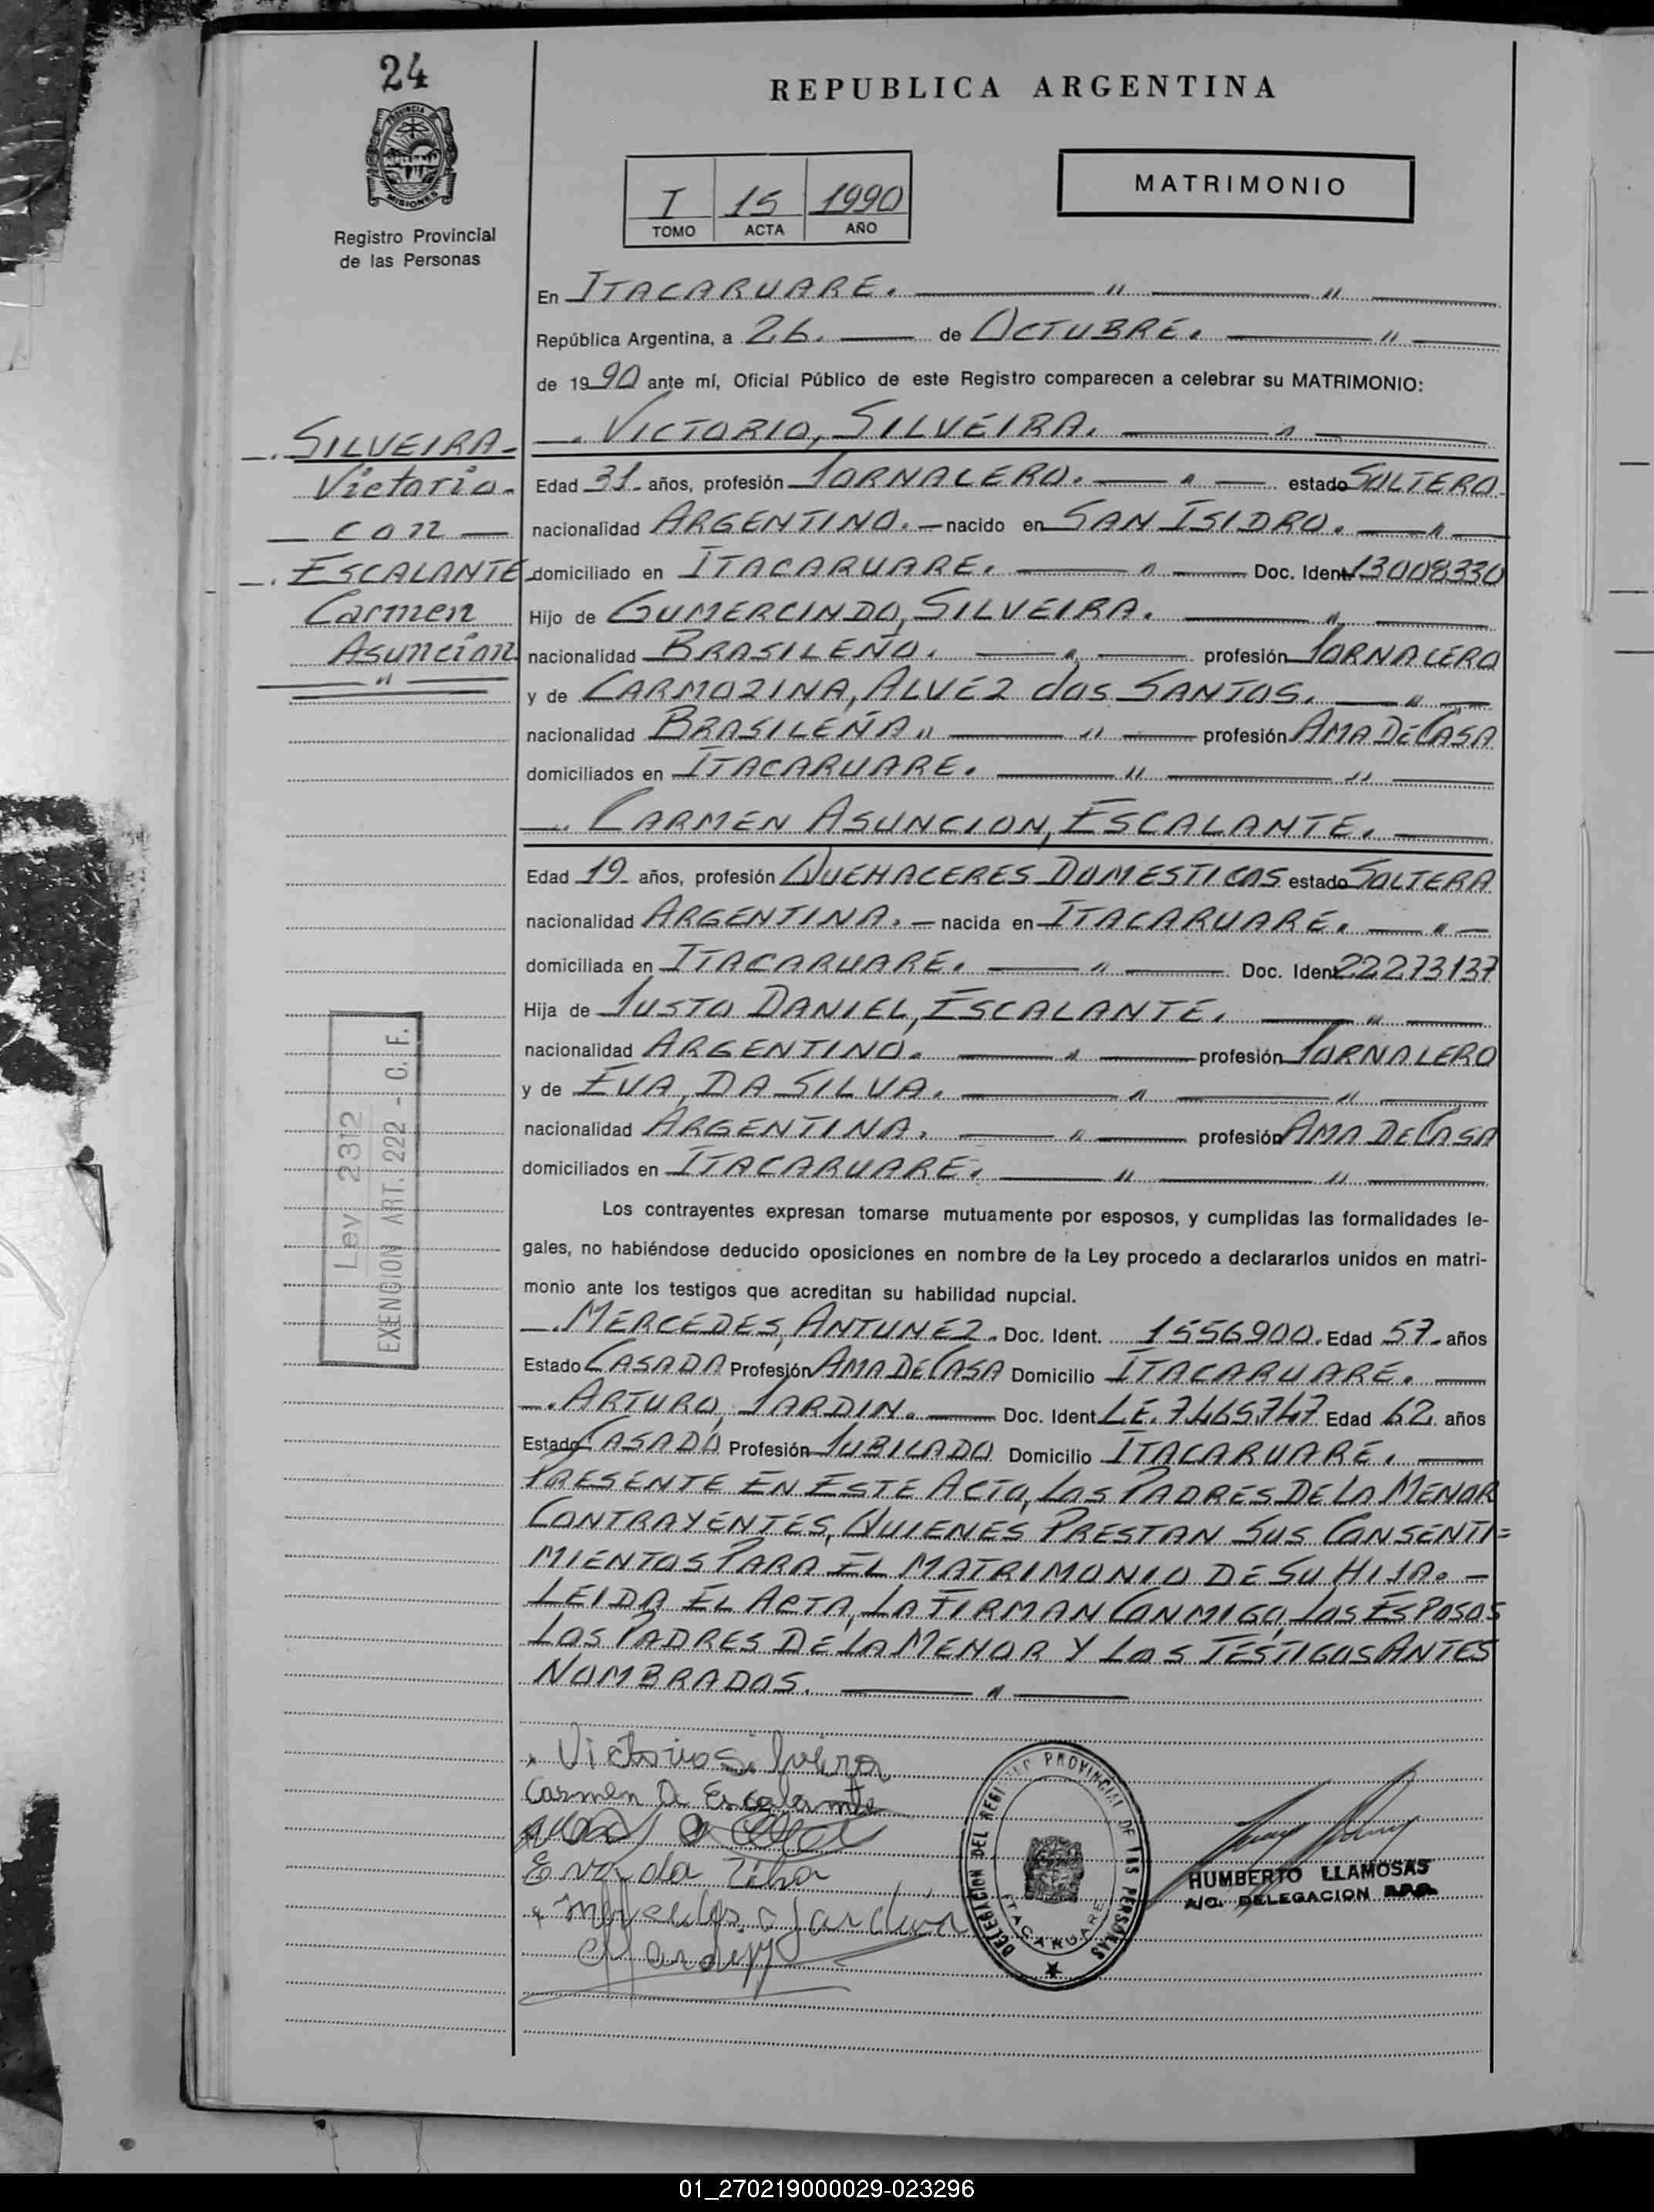 24
REPUBLICA ARGENTINA
PROVINCIA DE
MISIONES
Registro Provincial
de las Personas
I 15 1990
TOMO ACTA AÑO
MATRIMONIO
En ITACARUARE. " "
República Argentina, a 26. de OCTUBRE. "
de 1990 ante mí, Oficial Público de este Registro comparecen a celebrar su MATRIMONIO:
SILVEIRA
Victorio
con
ESCALANTE
Carmen
Asuncion
"
VICTORIO, SILVEIRA. "
Edad 31 años, profesión JORNALERO. " estado SOLTERO
nacionalidad ARGENTINO. nacido en SAN ISIDRO. "
domiciliado en ITACARUARE. " Doc. Ident. 13008330
Hijo de GUMERCINDO, SILVEIRA. "
nacionalidad BRASILEÑO. " profesión JORNALERO
y de CARMOZINA, ALVEZ dos SANTOS. "
nacionalidad BRASILEÑA " " profesión AMA DE CASA
domiciliados en ITACARUARE. " "
CARMEN ASUNCION, ESCALANTE.
Edad 19 años, profesión QUEHACERES DOMESTICOS estado SOLTERA
nacionalidad ARGENTINA. nacida en ITACARUARE. "
domiciliada en ITACARUARE. " Doc. Ident. 22273137
Hija de JUSTO DANIEL, ESCALANTE. "
nacionalidad ARGENTINO. " profesión JORNALERO
y de EVA, DA SILVA. " "
nacionalidad ARGENTINA. " profesión AMA DE CASA
domiciliados en ITACARUARE. " "
Ley 2312
EXENCION ART. 222 - C. F.
Los contrayentes expresan tomarse mutuamente por esposos, y cumplidas las formalidades le-
gales, no habiéndose deducido oposiciones en nombre de la Ley procedo a declararlos unidos en matri-
monio ante los testigos que acreditan su habilidad nupcial.
MERCEDES, ANTUNEZ. Doc. Ident. 1556900. Edad 57 años
Estado CASADA Profesión AMA DE CASA Domicilio ITACARUARE.
ARTURO, JARDIN. Doc. Ident. LE. 7.465.747 Edad 62 años
Estado CASADO Profesión JUBILADO Domicilio ITACARUARE.
PRESENTE EN ESTE ACTO, LOS PADRES DE LA MENOR
CONTRAYENTES, QUIENES PRESTAN SUS CONSENTI=
MIENTOS PARA EL MATRIMONIO DE SU HIJA.
LEIDA EL ACTA, LA FIRMAN CONMIGO, LOS ESPOSOS
LOS PADRES DE LA MENOR Y LOS TESTIGOS ANTES
NOMBRADOS. "
Victorio Silveira
Carmen A Escalante
Eva da Silva
Jardin
DELEGACION DEL REGISTRO PROVINCIAL DE LAS PERSONAS
ITACARUARE
HUMBERTO LLAMOSAS
A/C. DELEGACION
01_270219000029-023296